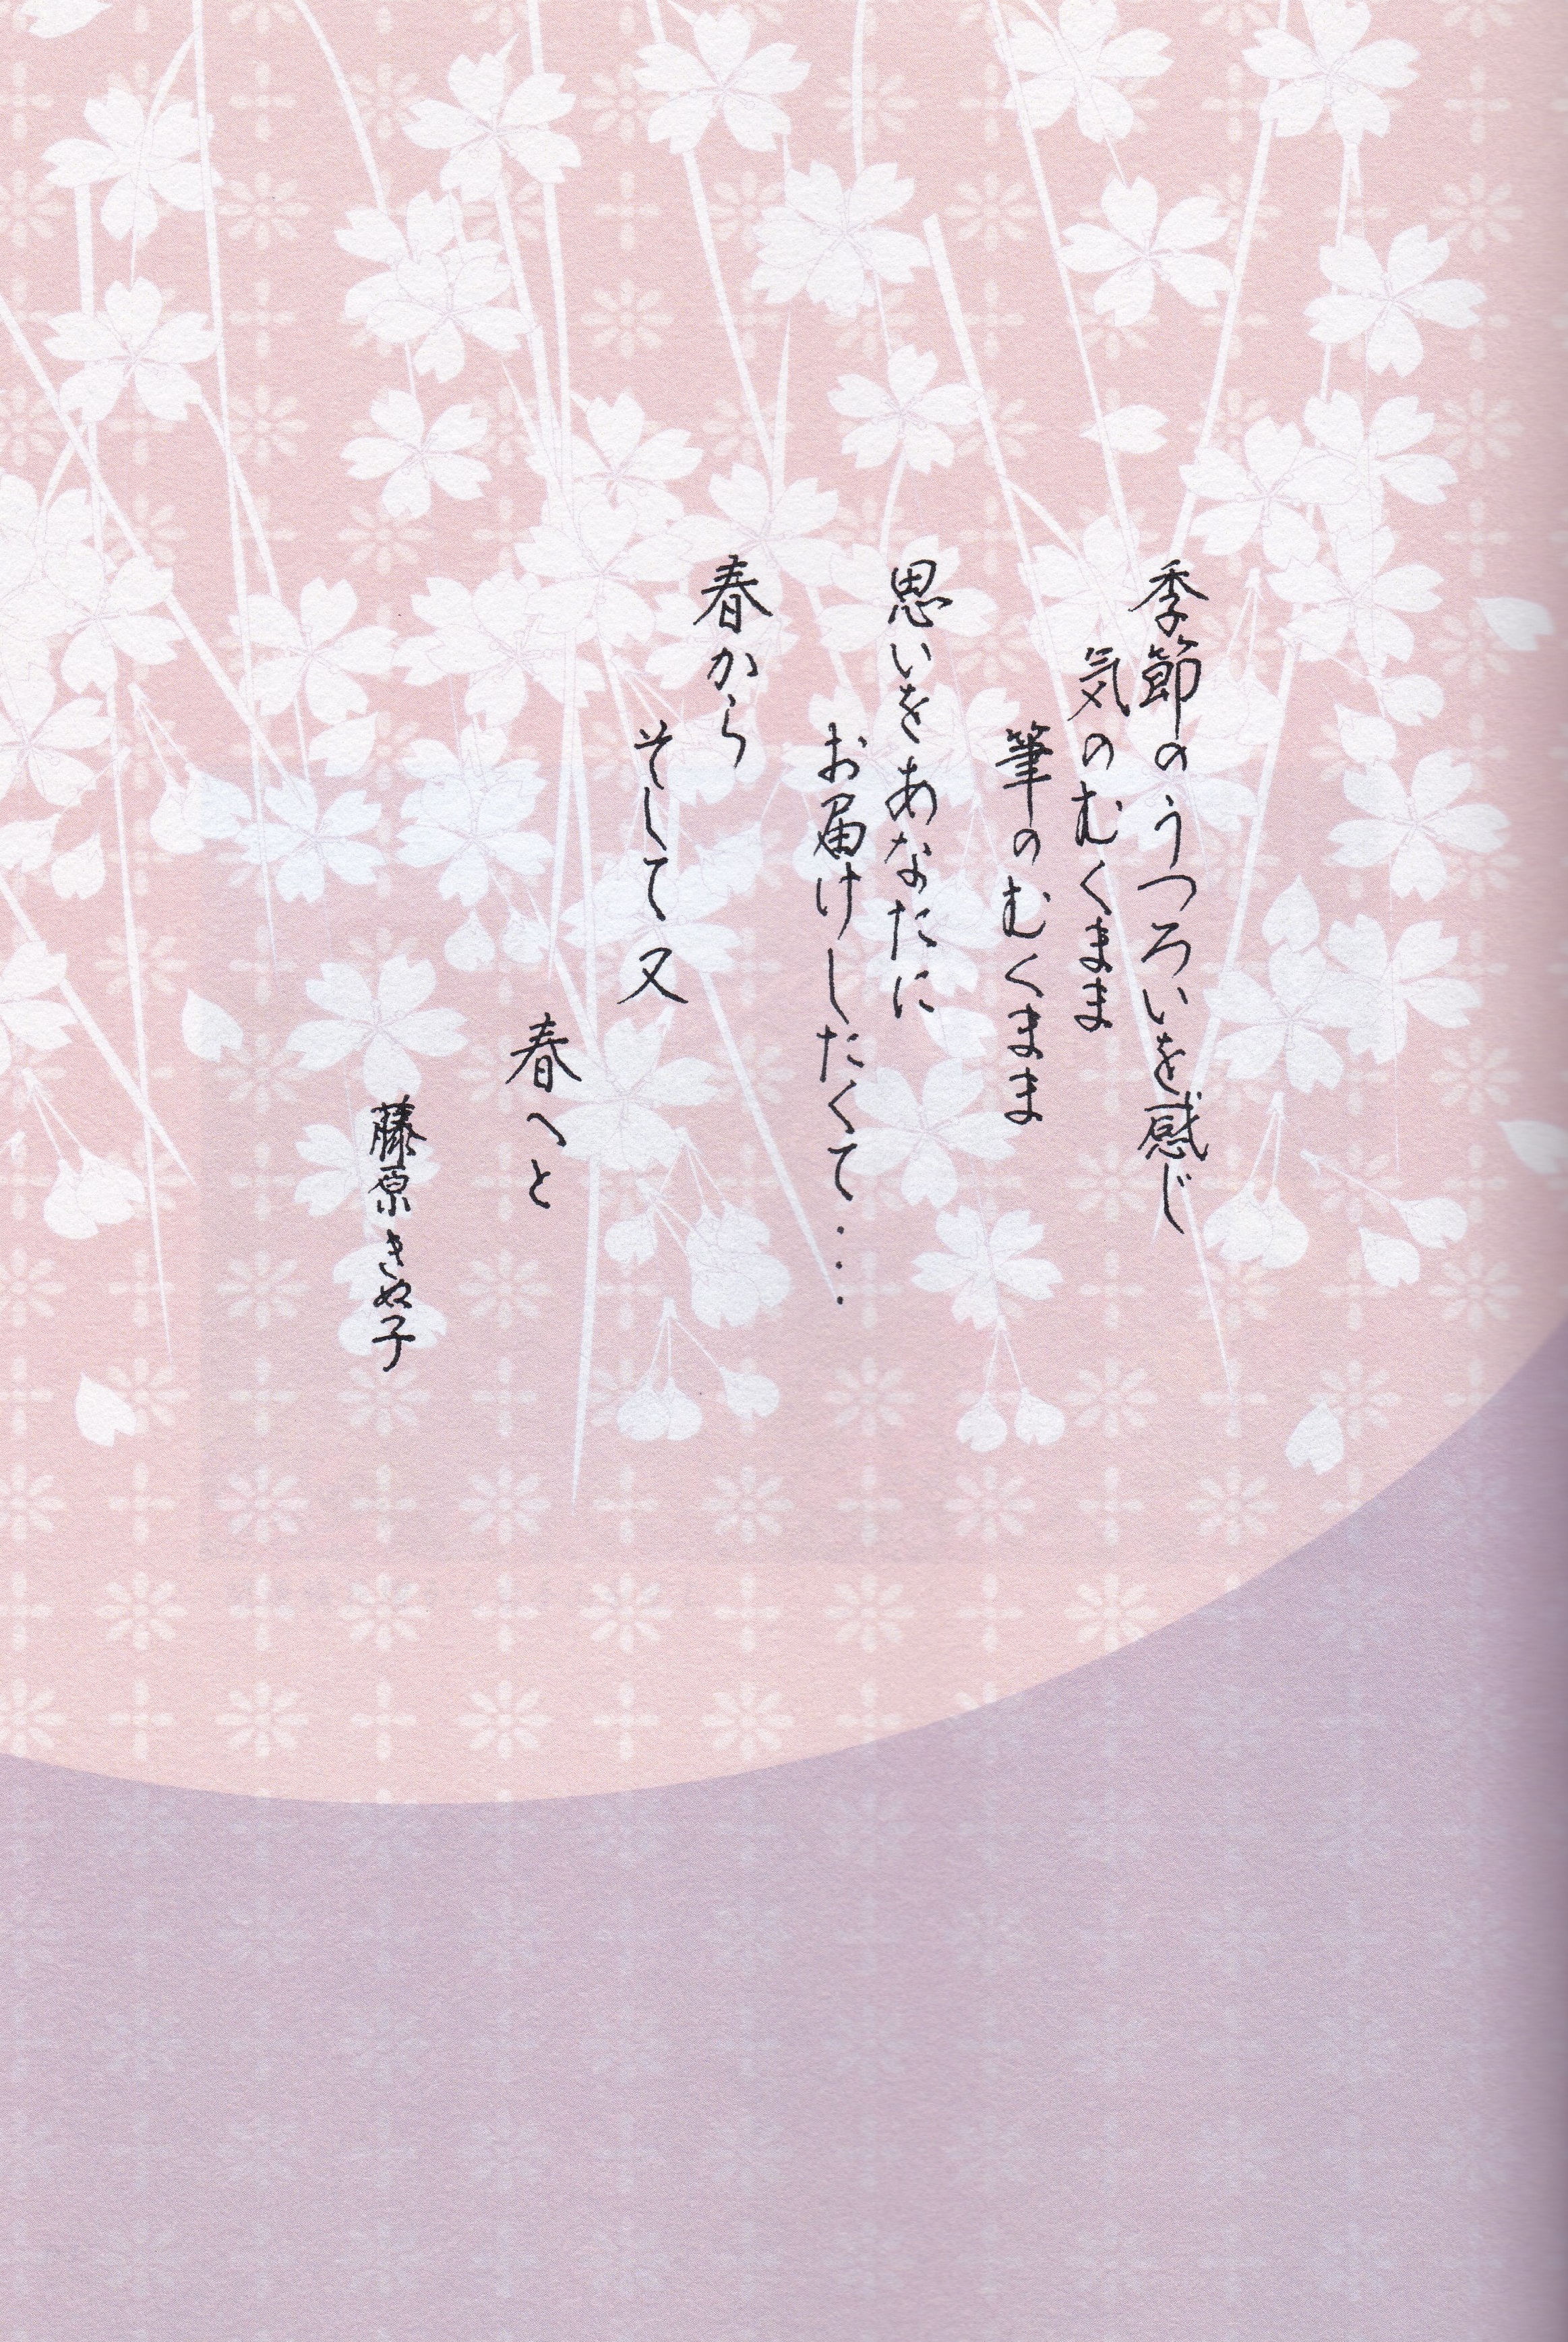 季節のうつろいを感じ
気のむくまま
筆のむくまま
思いをあなたに
お届けしたくて...
春から
そして又
春へと
藤原きぬ子